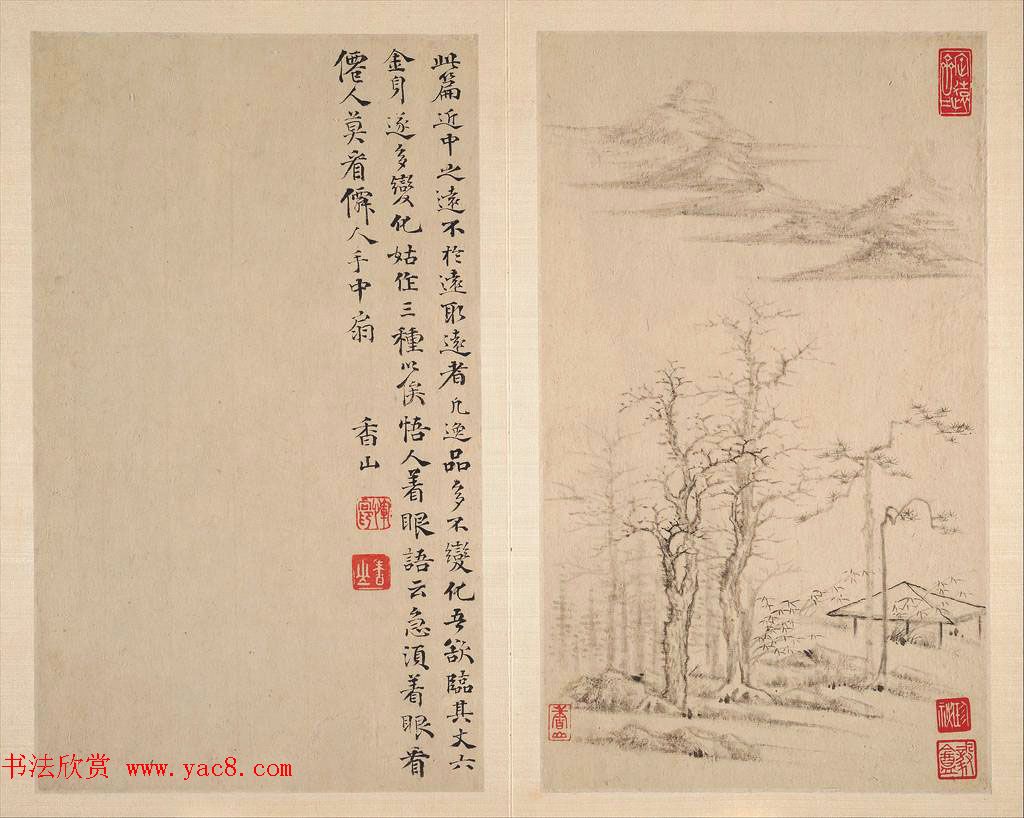 此篇近中之遠不於遠取遠者凡逸品多不變化吾欲臨其丈六
金身遂多變化姑作三種以俟悟人着眼語云急須着眼看
僊人莫看僊人手中扇
香山
香山
書法欣赏 www.yac8.com